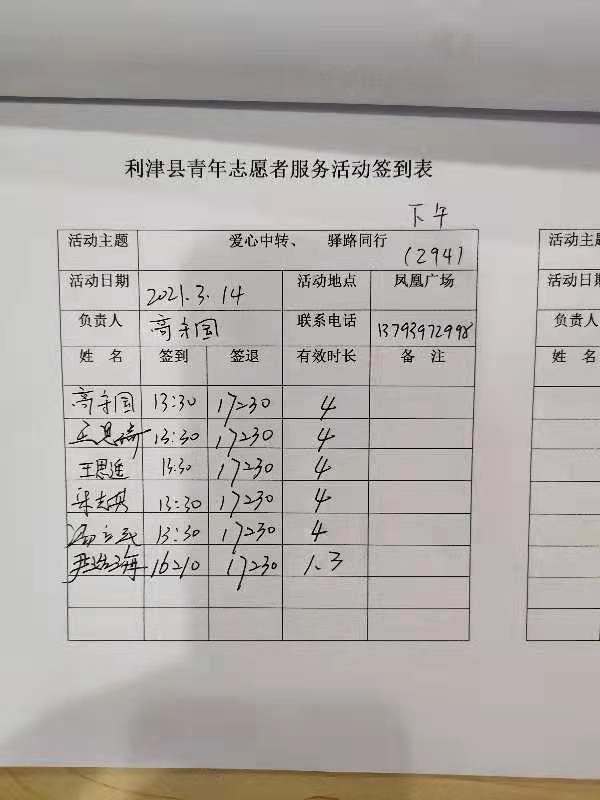 利津县青年志愿者服务活动签到表
下午
活动主题 爱心中转、 驿路同行 (294)
活动日期 2021.3.14 活动地点 凤凰广场
负责人 高守国 联系电话 13793972998
姓 名 签到 签退 有效时长 备 注
高守国 13:30 17:30 4
13:30 17:30 4
王思遥 13:30 17:30 4
13:30 17:30 4
13:30 17:30 4
16:10 17:30 1.3
活动主题
活动日期
负责人
姓 名